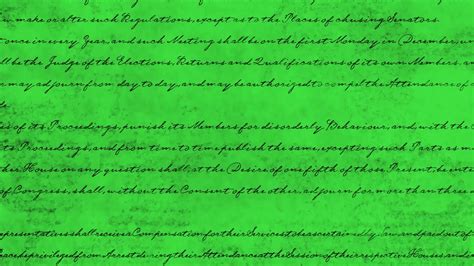 make or alter such Regulations, except as to the Places of chusing Senators.
once in every Year, and such Meeting shall be on the first Monday in December, un
ll be the Judge of the Elections, Returns and Qualifications of its own Members, an
may adjourn from day to day, and may be authorized to compel the Attendance of
es of its Proceedings, punish its Members for disorderly Behaviour, and, with the C
ts Proceedings, and from time to time publish the same, excepting such Parts as m
ther House on any question shall, at the Desire of one fifth of those Present, be ente
of Congress, shall, without the Consent of the other, adjourn for more than three
presentatives shall receive a Compensation for their Services to be ascertained by Law, and paid out of
eace be privileged from Arrest during their Attendance at the Session of their respective Houses, and